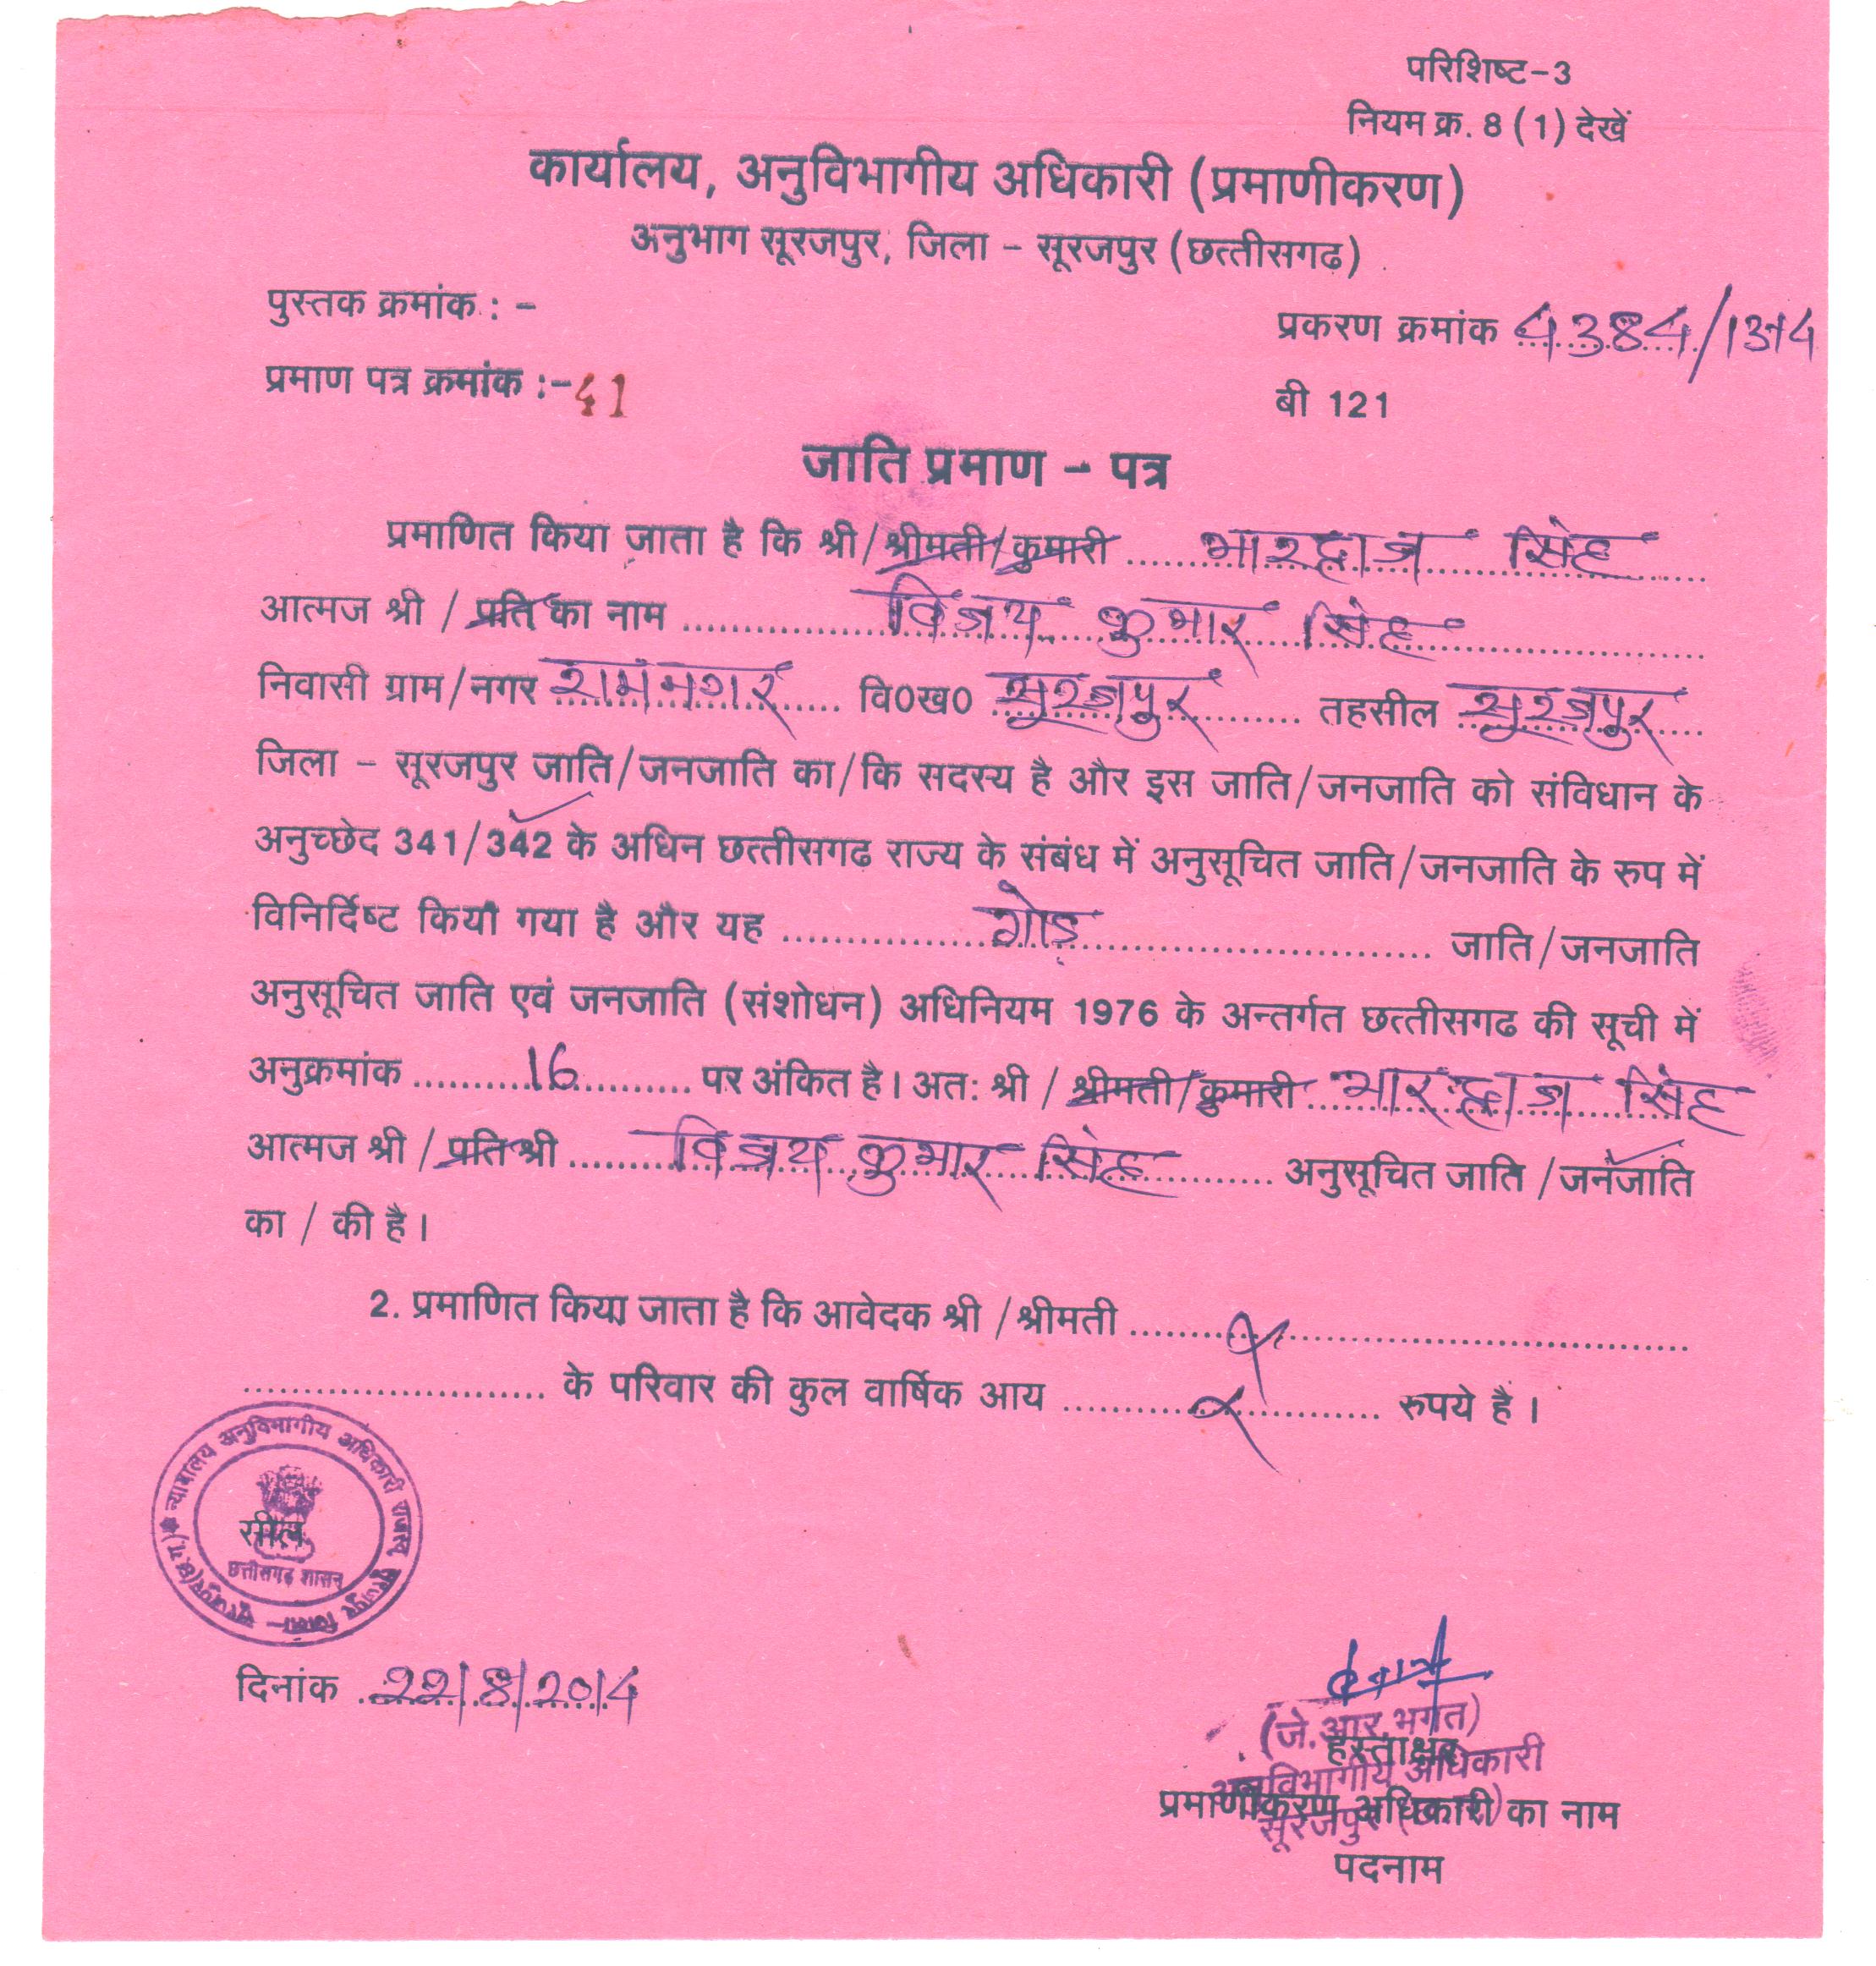 परिशिष्ट-3
नियम क्र. 8 (1) देखें
कार्यालय, अनुविभागीय अधिकारी (प्रमाणीकरण)
अनुभाग सूरजपुर, जिला - सूरजपुर (छत्तीसगढ)
पुस्तक क्रमांक : -
प्रकरण क्रमांक 4384/13-14
प्रमाण पत्र क्रमांक :- 41
बी 121
जाति प्रमाण - पत्र
प्रमाणित किया जाता है कि श्री/श्रीमती/कुमारी भारद्वाज सिंह
आत्मज श्री / प्रति का नाम विजय कुमार सिंह
निवासी ग्राम/नगर रामनगर वि0ख0 सूरजपुर तहसील सूरजपुर
जिला - सूरजपुर जाति/जनजाति का/कि सदस्य है और इस जाति/जनजाति को संविधान के
अनुच्छेद 341/342 के अधिन छत्तीसगढ राज्य के संबंध में अनुसूचित जाति/जनजाति के रुप में
विनिर्दिष्ट किया गया है और यह गोड़ जाति/जनजाति
अनुसूचित जाति एवं जनजाति (संशोधन) अधिनियम 1976 के अन्तर्गत छत्तीसगढ की सूची में
अनुक्रमांक 16 पर अंकित है। अतः श्री / श्रीमती/कुमारी भारद्वाज सिंह
आत्मज श्री / प्रति श्री विजय कुमार सिंह अनुसूचित जाति / जनजाति
का / की है।
2. प्रमाणित किया जाता है कि आवेदक श्री / श्रीमती
के परिवार की कुल वार्षिक आय रुपये है।
न्यायालय अनुविभागीय अधिकारी राजस्व सूरजपुर जिला-सूरजपुर (छ.ग.)
सील
छत्तीसगढ़ शासन
दिनांक 22/8/2014
(जे.आर.भगत)
हस्ताक्षर
अनुविभागीय अधिकारी
प्रमाणीकरण अधिकारी का नाम
सूरजपुर
पदनाम